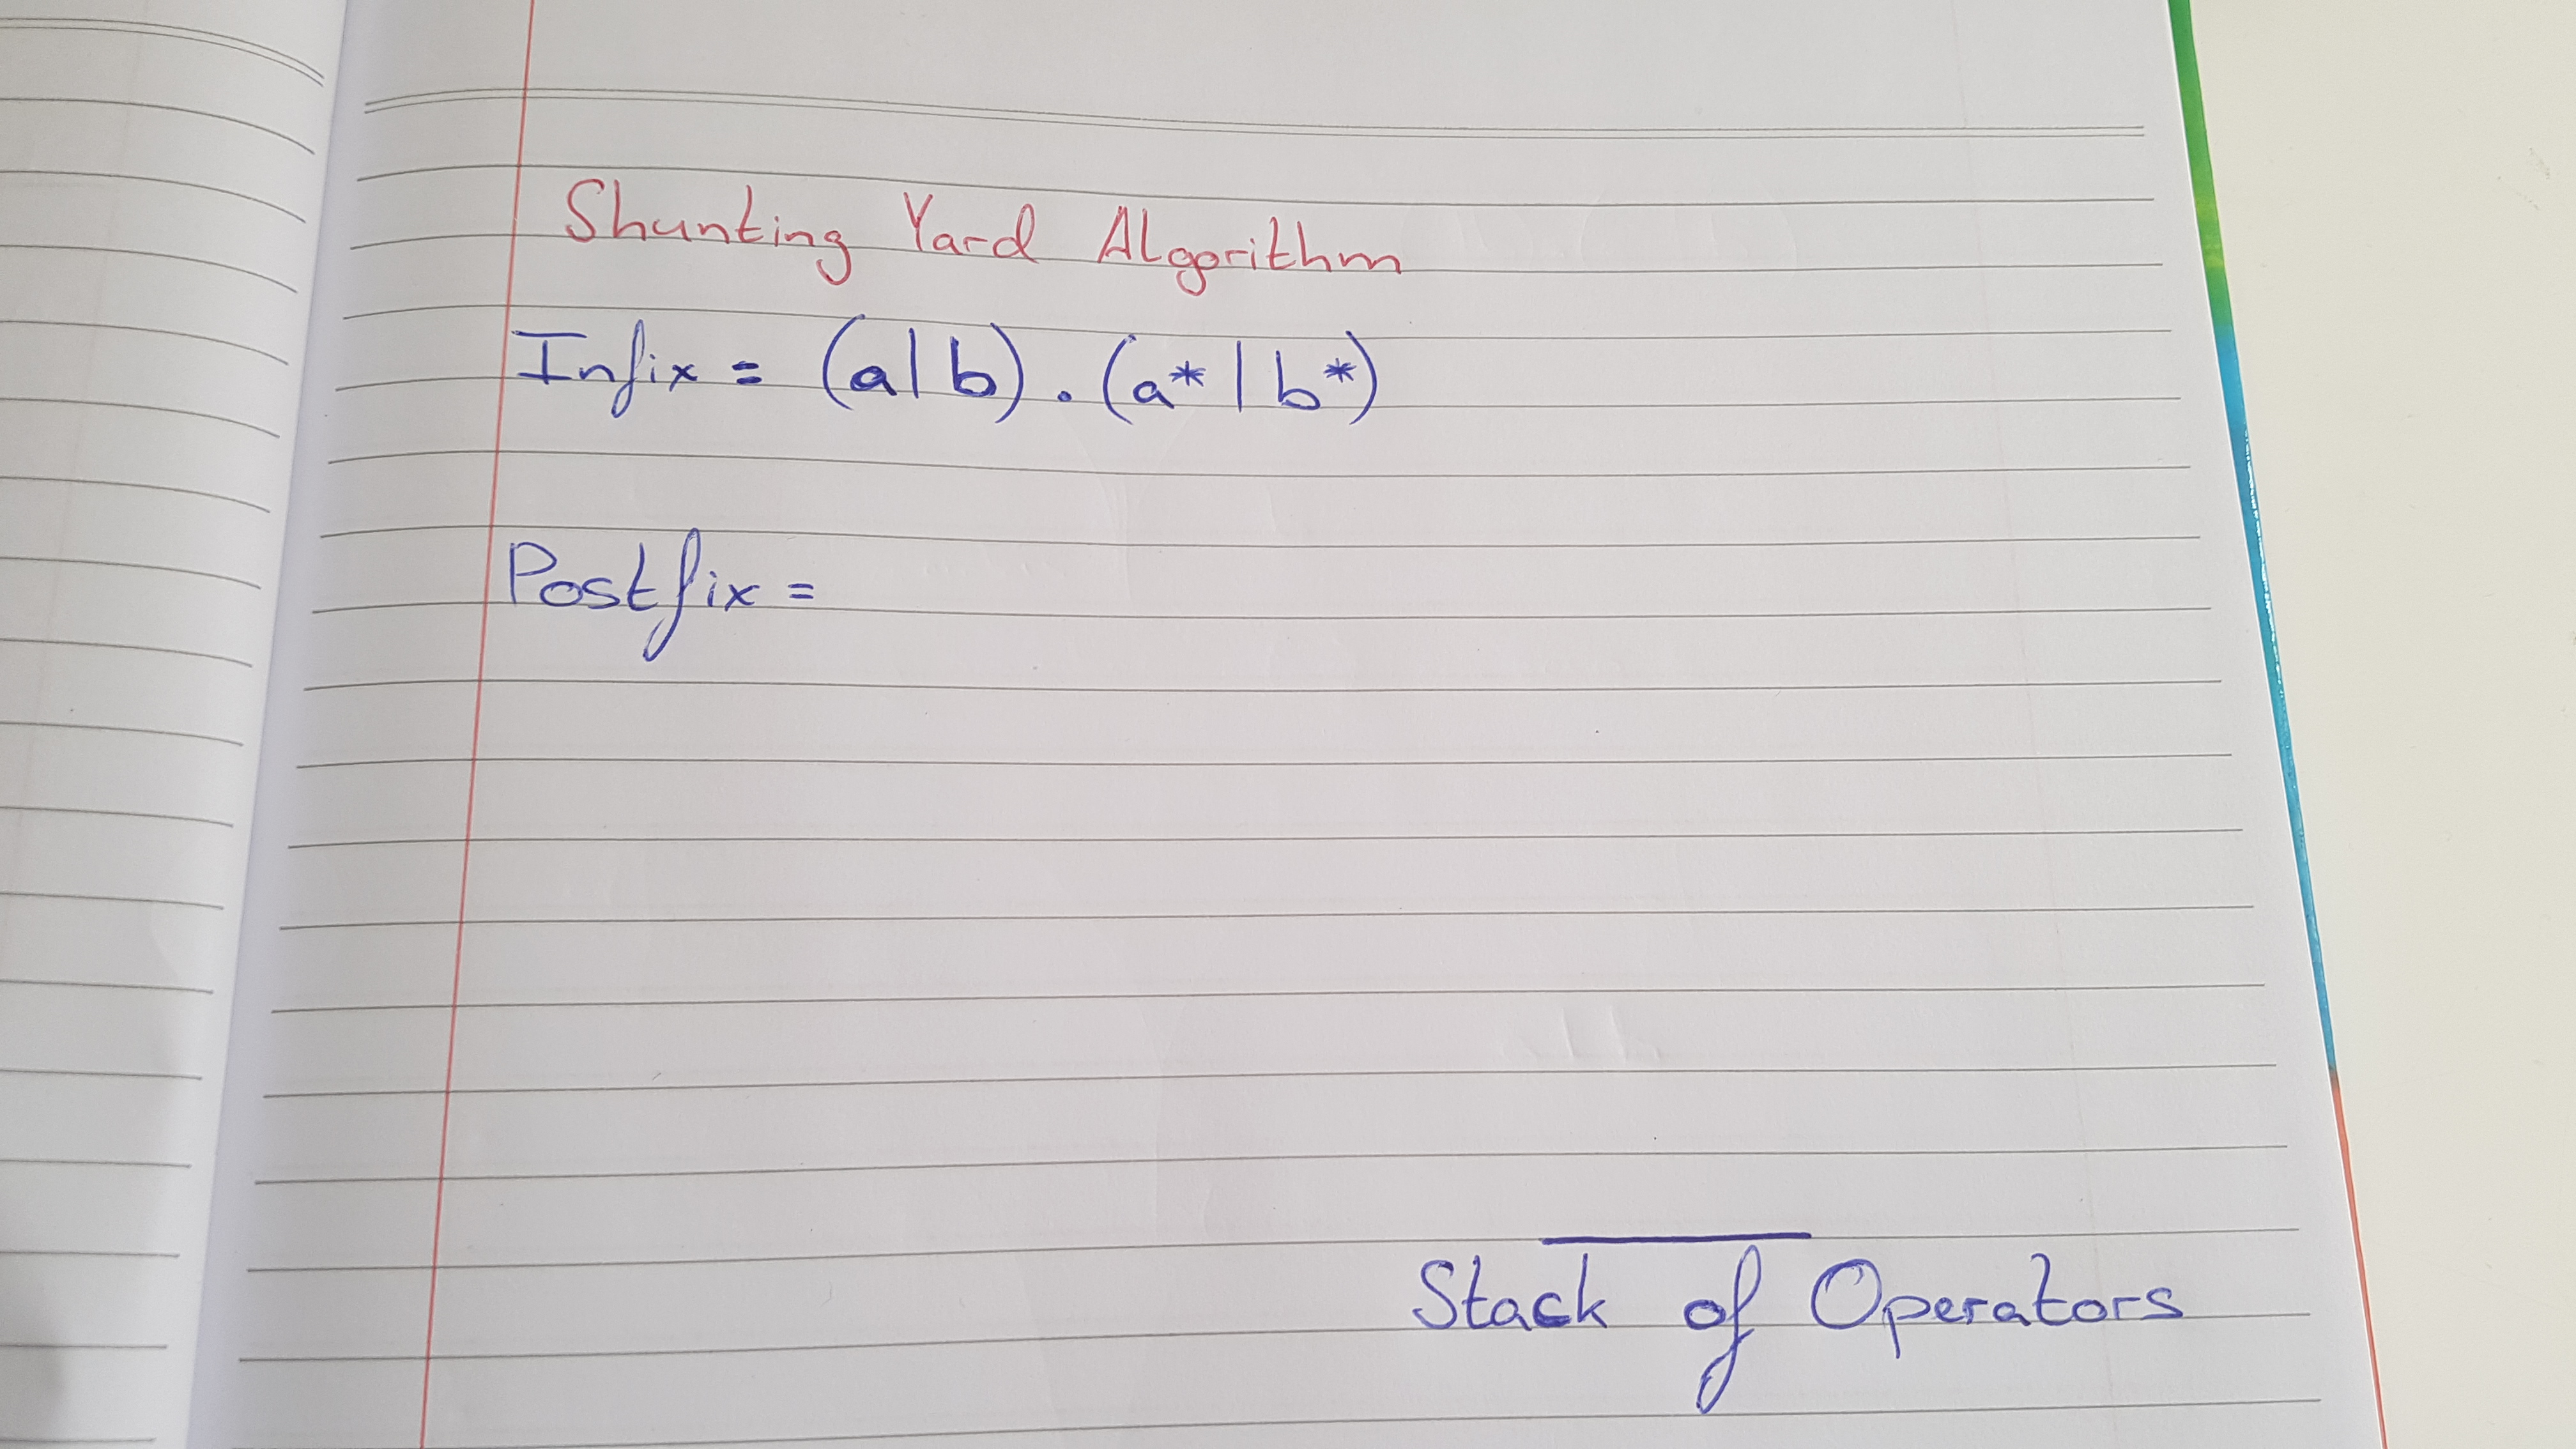 Shunting Yard Algorithm
Infix = (a|b).(a*|b*)
Postfix =
Stack of Operators